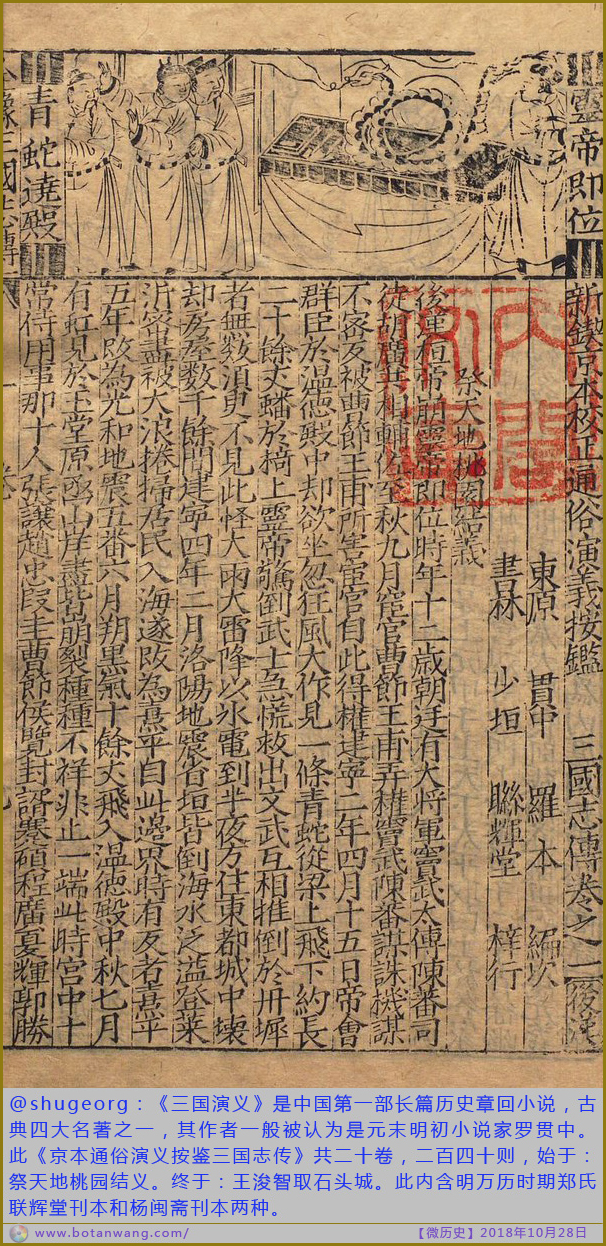 靈帝即位
青蛇遶殿
新鍥京本校正通俗演義按鑑三國志傳卷之一
東原 貫中 羅本 編次
書林 少垣 聯輝堂 梓行
祭天地桃園結義
後漢桓帝崩靈帝即位時年十二歲朝廷有大將軍竇武太傅陳蕃司
徒胡廣共相輔佐至秋九月宦官曹節王甫弄權竇武陳蕃謀誅機謀
不密反被曹節王甫所害宦官自此得權建寧二年四月十五日帝會
群臣於温德殿中却欲坐忽狂風大作見一條青蛇從梁上飛下約長
二十餘丈蟠於椅上靈帝驚倒武士急慌救出文武互相推倒於丹墀
者無数湏臾不見此怪大雨大雷降以氷雹到半夜方住東都城中壞
却房屋数千餘間建寧四年二月洛陽地震省垣皆倒海水泛溢登萊
沂宻盡被大浪捲掃居民入海遂改為熹平自此邊界時有反者熹平
五年改為光和地震五番六月朔黒氣十餘丈飛入温德殿中秋七月
有虹見於玉堂原丞山岸盡皆崩裂種種不祥非止一端此時宮中十
常侍用事那十人張讓趙忠段圭曹節侯覽封諝蹇碩程廣夏輝郭勝
@shugeorg：《三国演义》是中国第一部长篇历史章回小说，古
典四大名著之一，其作者一般被认为是元末明初小说家罗贯中。
此《京本通俗演义按鉴三国志传》共二十卷，二百四十则，始于：
祭天地桃园结义。终于：王浚智取石头城。此内含明万历时期郑氏
联辉堂刊本和杨闽斋刊本两种。
www.botanwang.com/
【微历史】2018年10月28日